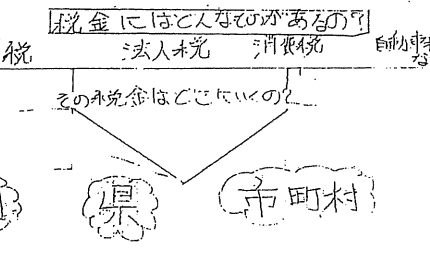 税金にはどんなものがあるの?
税 法人税 消費税 自動車
その税金はどこにいくの?
県 市町村